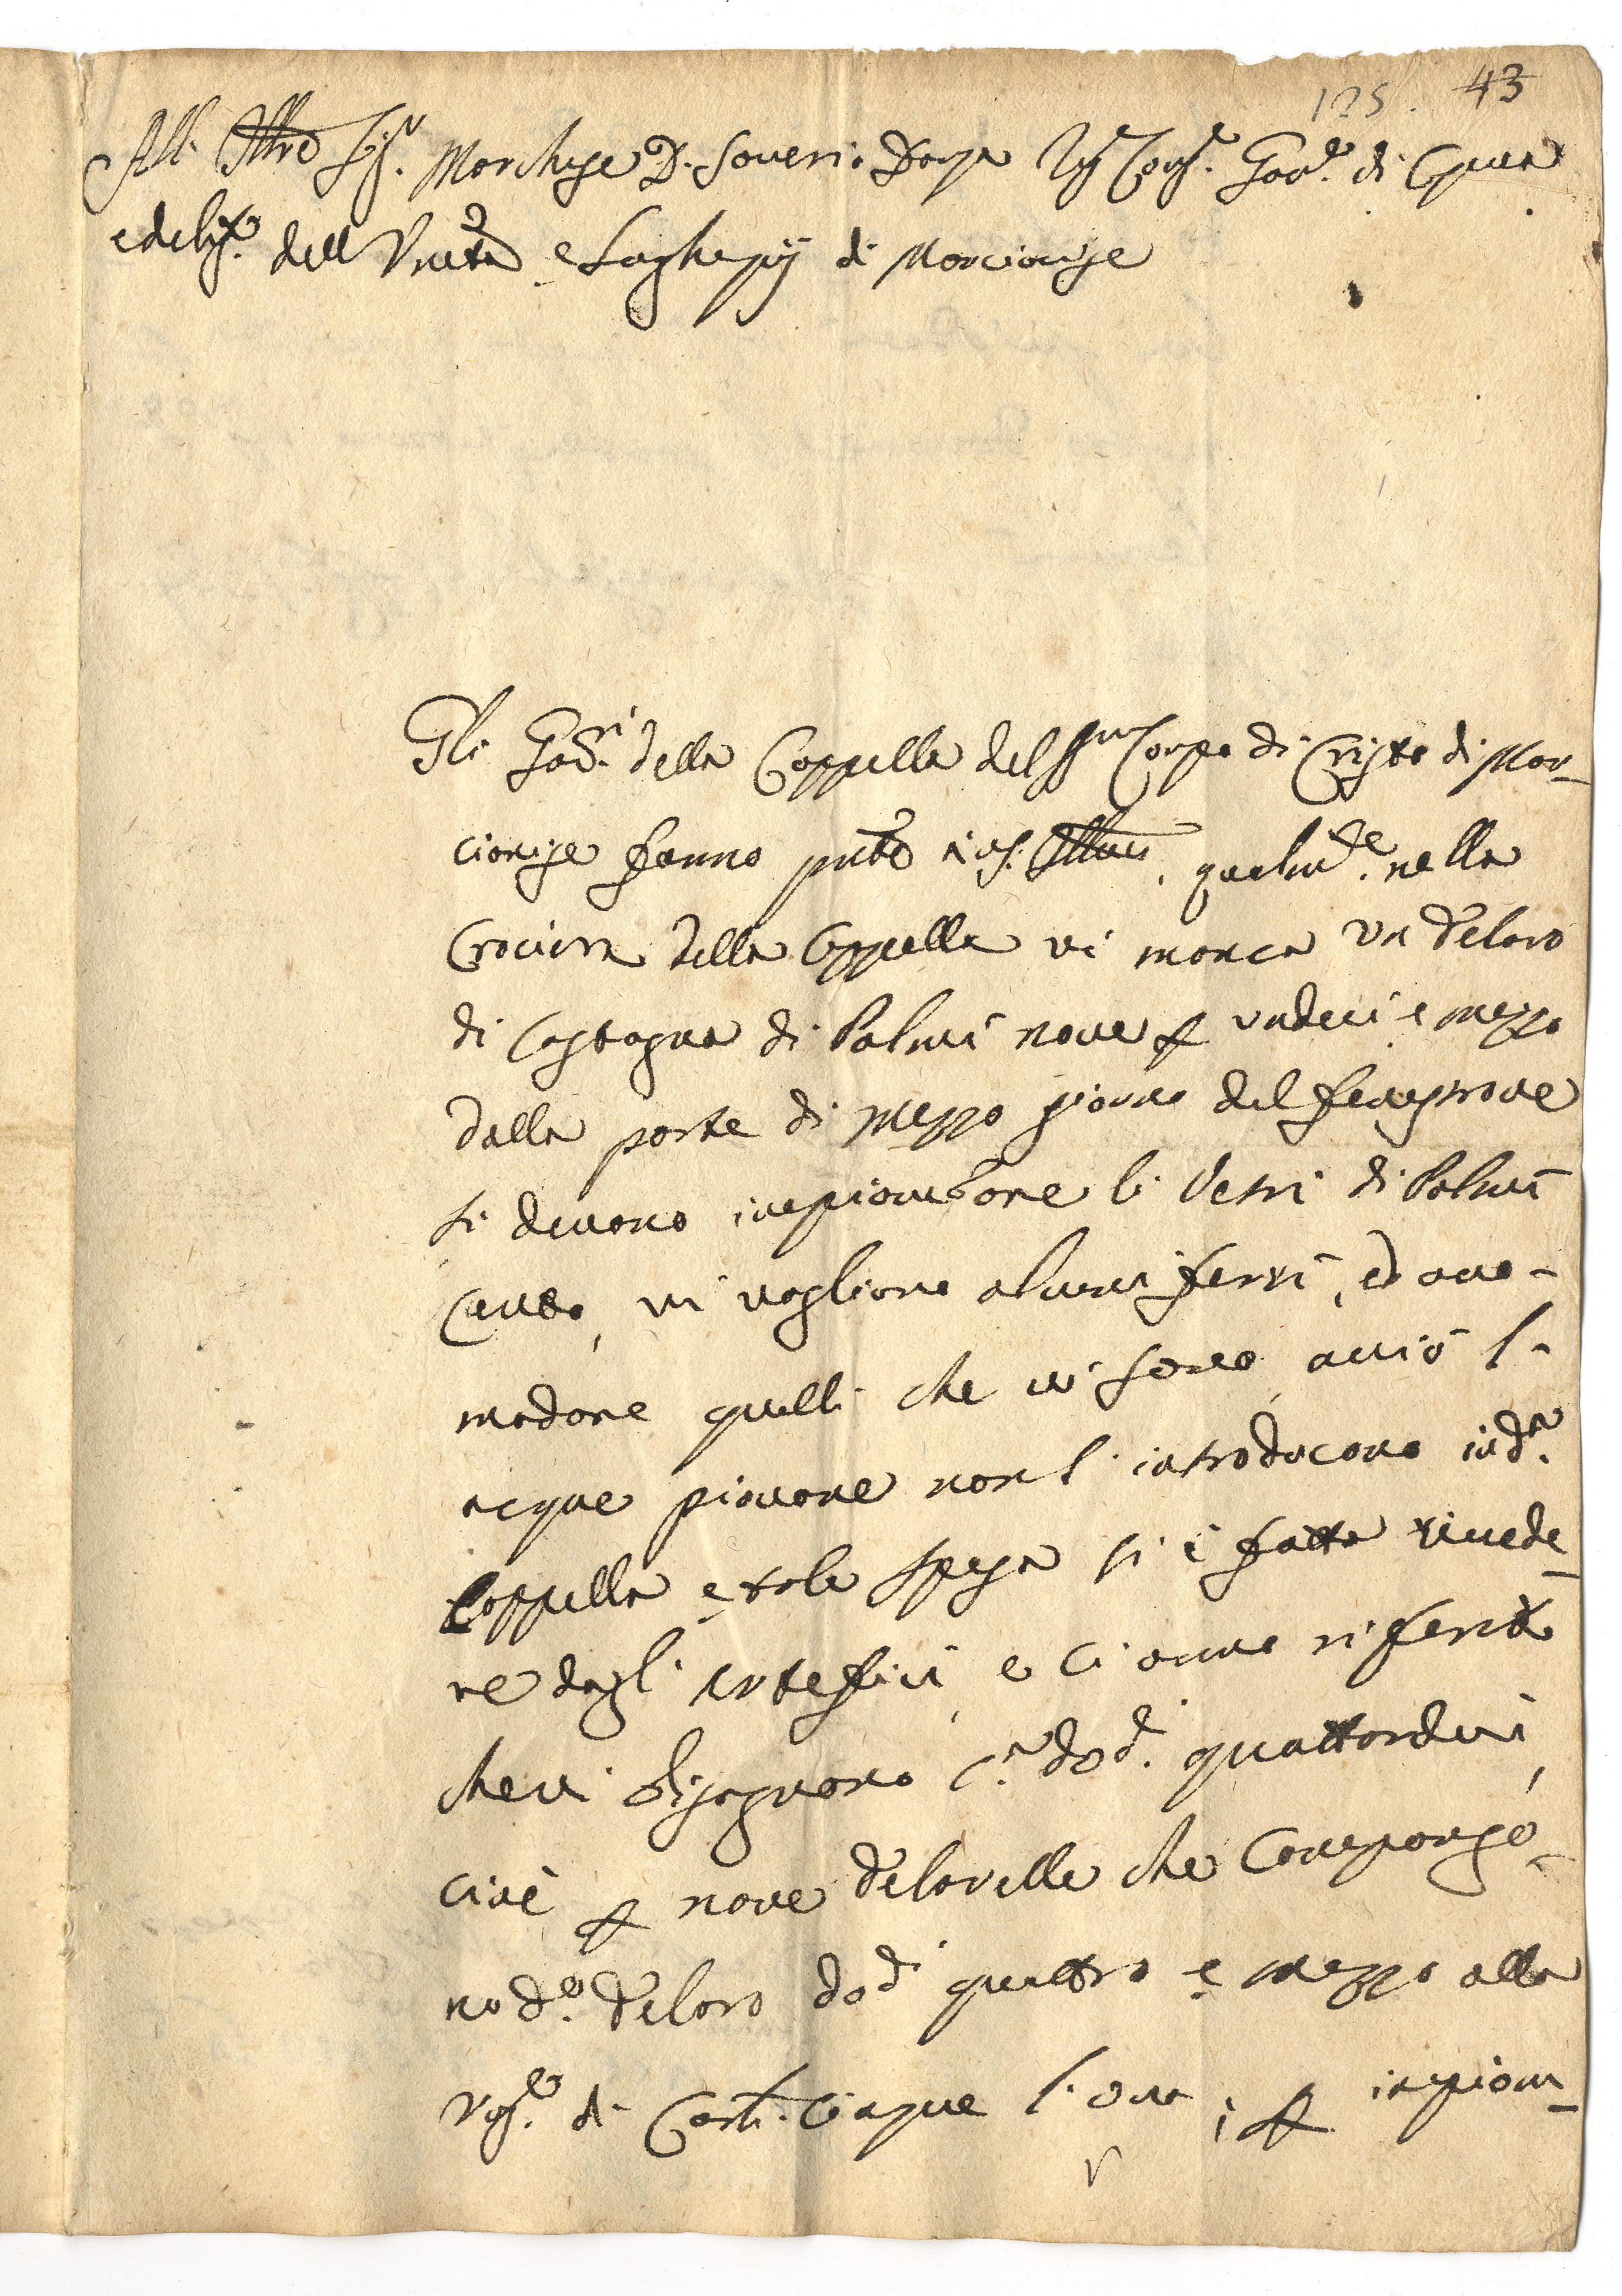 125. 43
All' Ill.re Sig.r Marchese D. Saverio Danza Reg. Cons.r Gov.re di Capua
e deleg.to dell' Un.tà e Luoghi pij di Marcianise
Gli Gov.ri della Cappella del SS.mo Corpo di Cristo di Mar-
cianise fanno pnte a V.S. Ill.ma qualm.te nella
Crociera della Cappella vi manca un Telaro
di Castagna di Palmi nove p undeci e mezzo
dalla parte di mezzo giorno del fenestrone
si devono impiombare li Vetri di Palmi
Cento, vi vogliono alcuni ferri, ed acco-
modare quelli che vi sono, acciò l'
acque piovane non l' introducono in d.a
Cappella, e tale spesa si è fatta rivede-
re dagl' Artefici, e ci anno riferito
che vi bisognano c.a doc.ti quattordeci,
cioè p nove Telarelle che compongo-
no d.o Telaro doc.ti quattro e mezzo alla
rag.e di Carl. Cinque l'una; p impiom-